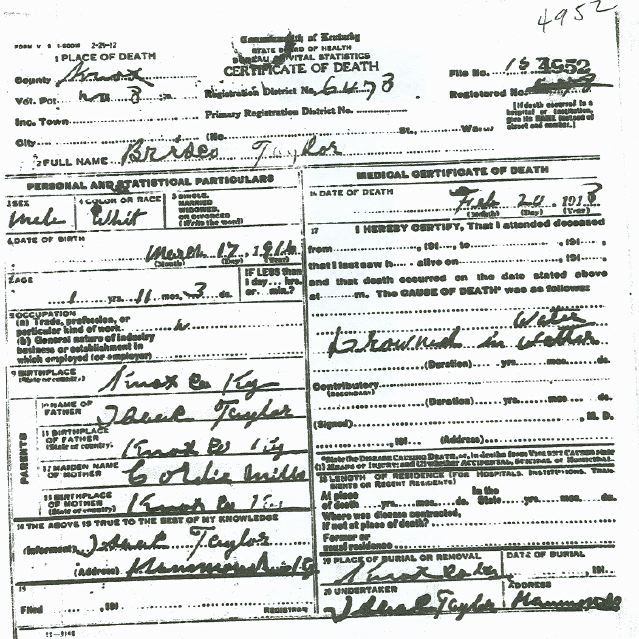 4952
FORM V. S. 2-29-12
Commonwealth of Kentucky
STATE BOARD OF HEALTH
BUREAU OF VITAL STATISTICS
CERTIFICATE OF DEATH
1 PLACE OF DEATH
County Knox
Vot. Pct. No 3
Inc. Town
City
Registration District No. 6473
Primary Registration District No.
(No. St., Ward)
File No. 4952
Registered No.
[If death occurred in a hospital or institution, give its NAME instead of street and number.]
2 FULL NAME Brisco Taylor
PERSONAL AND STATISTICAL PARTICULARS
3 SEX
Male
4 COLOR OR RACE
Whit
5 SINGLE, MARRIED, WIDOWED, OR DIVORCED (Write the word)
6 DATE OF BIRTH
March 17, 191
(Month) (Day) (Year)
7 AGE
1 yrs. 11 mos. 3 ds.
IF LESS than 1 day... hrs. or... min.?
8 OCCUPATION
(a) Trade, profession, or particular kind of work
(b) General nature of industry business or establishment in which employed (or employer)
9 BIRTHPLACE
(State or country)
Knox Co Ky
PARENTS
10 NAME OF FATHER
Taylor
11 BIRTHPLACE OF FATHER
(State or country)
Knox Co Ky
12 MAIDEN NAME OF MOTHER
Cordie Mills
13 BIRTHPLACE OF MOTHER
(State or country)
Knox Co Ky
14 THE ABOVE IS TRUE TO THE BEST OF MY KNOWLEDGE
(Informant) Taylor
(Address)
15
Filed , 191
REGISTRAR
MEDICAL CERTIFICATE OF DEATH
16 DATE OF DEATH
Feb 20, 1913
(Month) (Day) (Year)
17 I HEREBY CERTIFY, That I attended deceased
from , 191 , to , 191 ,
that I last saw h alive on , 191 ,
and that death occurred on the date stated above
at m. The CAUSE OF DEATH* was as follows:
Water
Drowned in
(Duration) yrs. mos. ds.
Contributory
(SECONDARY)
(Duration) yrs. mos. ds.
(Signed) , M. D.
, 191 (Address)
*State the DISEASE CAUSING DEATH, or, in deaths from VIOLENT CAUSES state (1) MEANS OF INJURY; and (2) whether ACCIDENTAL, SUICIDAL or HOMICIDAL.
18 LENGTH OF RESIDENCE (FOR HOSPITALS, INSTITUTIONS, TRANSIENTS OR RECENT RESIDENTS)
At place of death yrs. mos. ds. In the State yrs. mos. ds.
Where was disease contracted, if not at place of death?
Former or usual residence
19 PLACE OF BURIAL OR REMOVAL
Knox Co
DATE OF BURIAL
, 191
20 UNDERTAKER
Taylor
ADDRESS